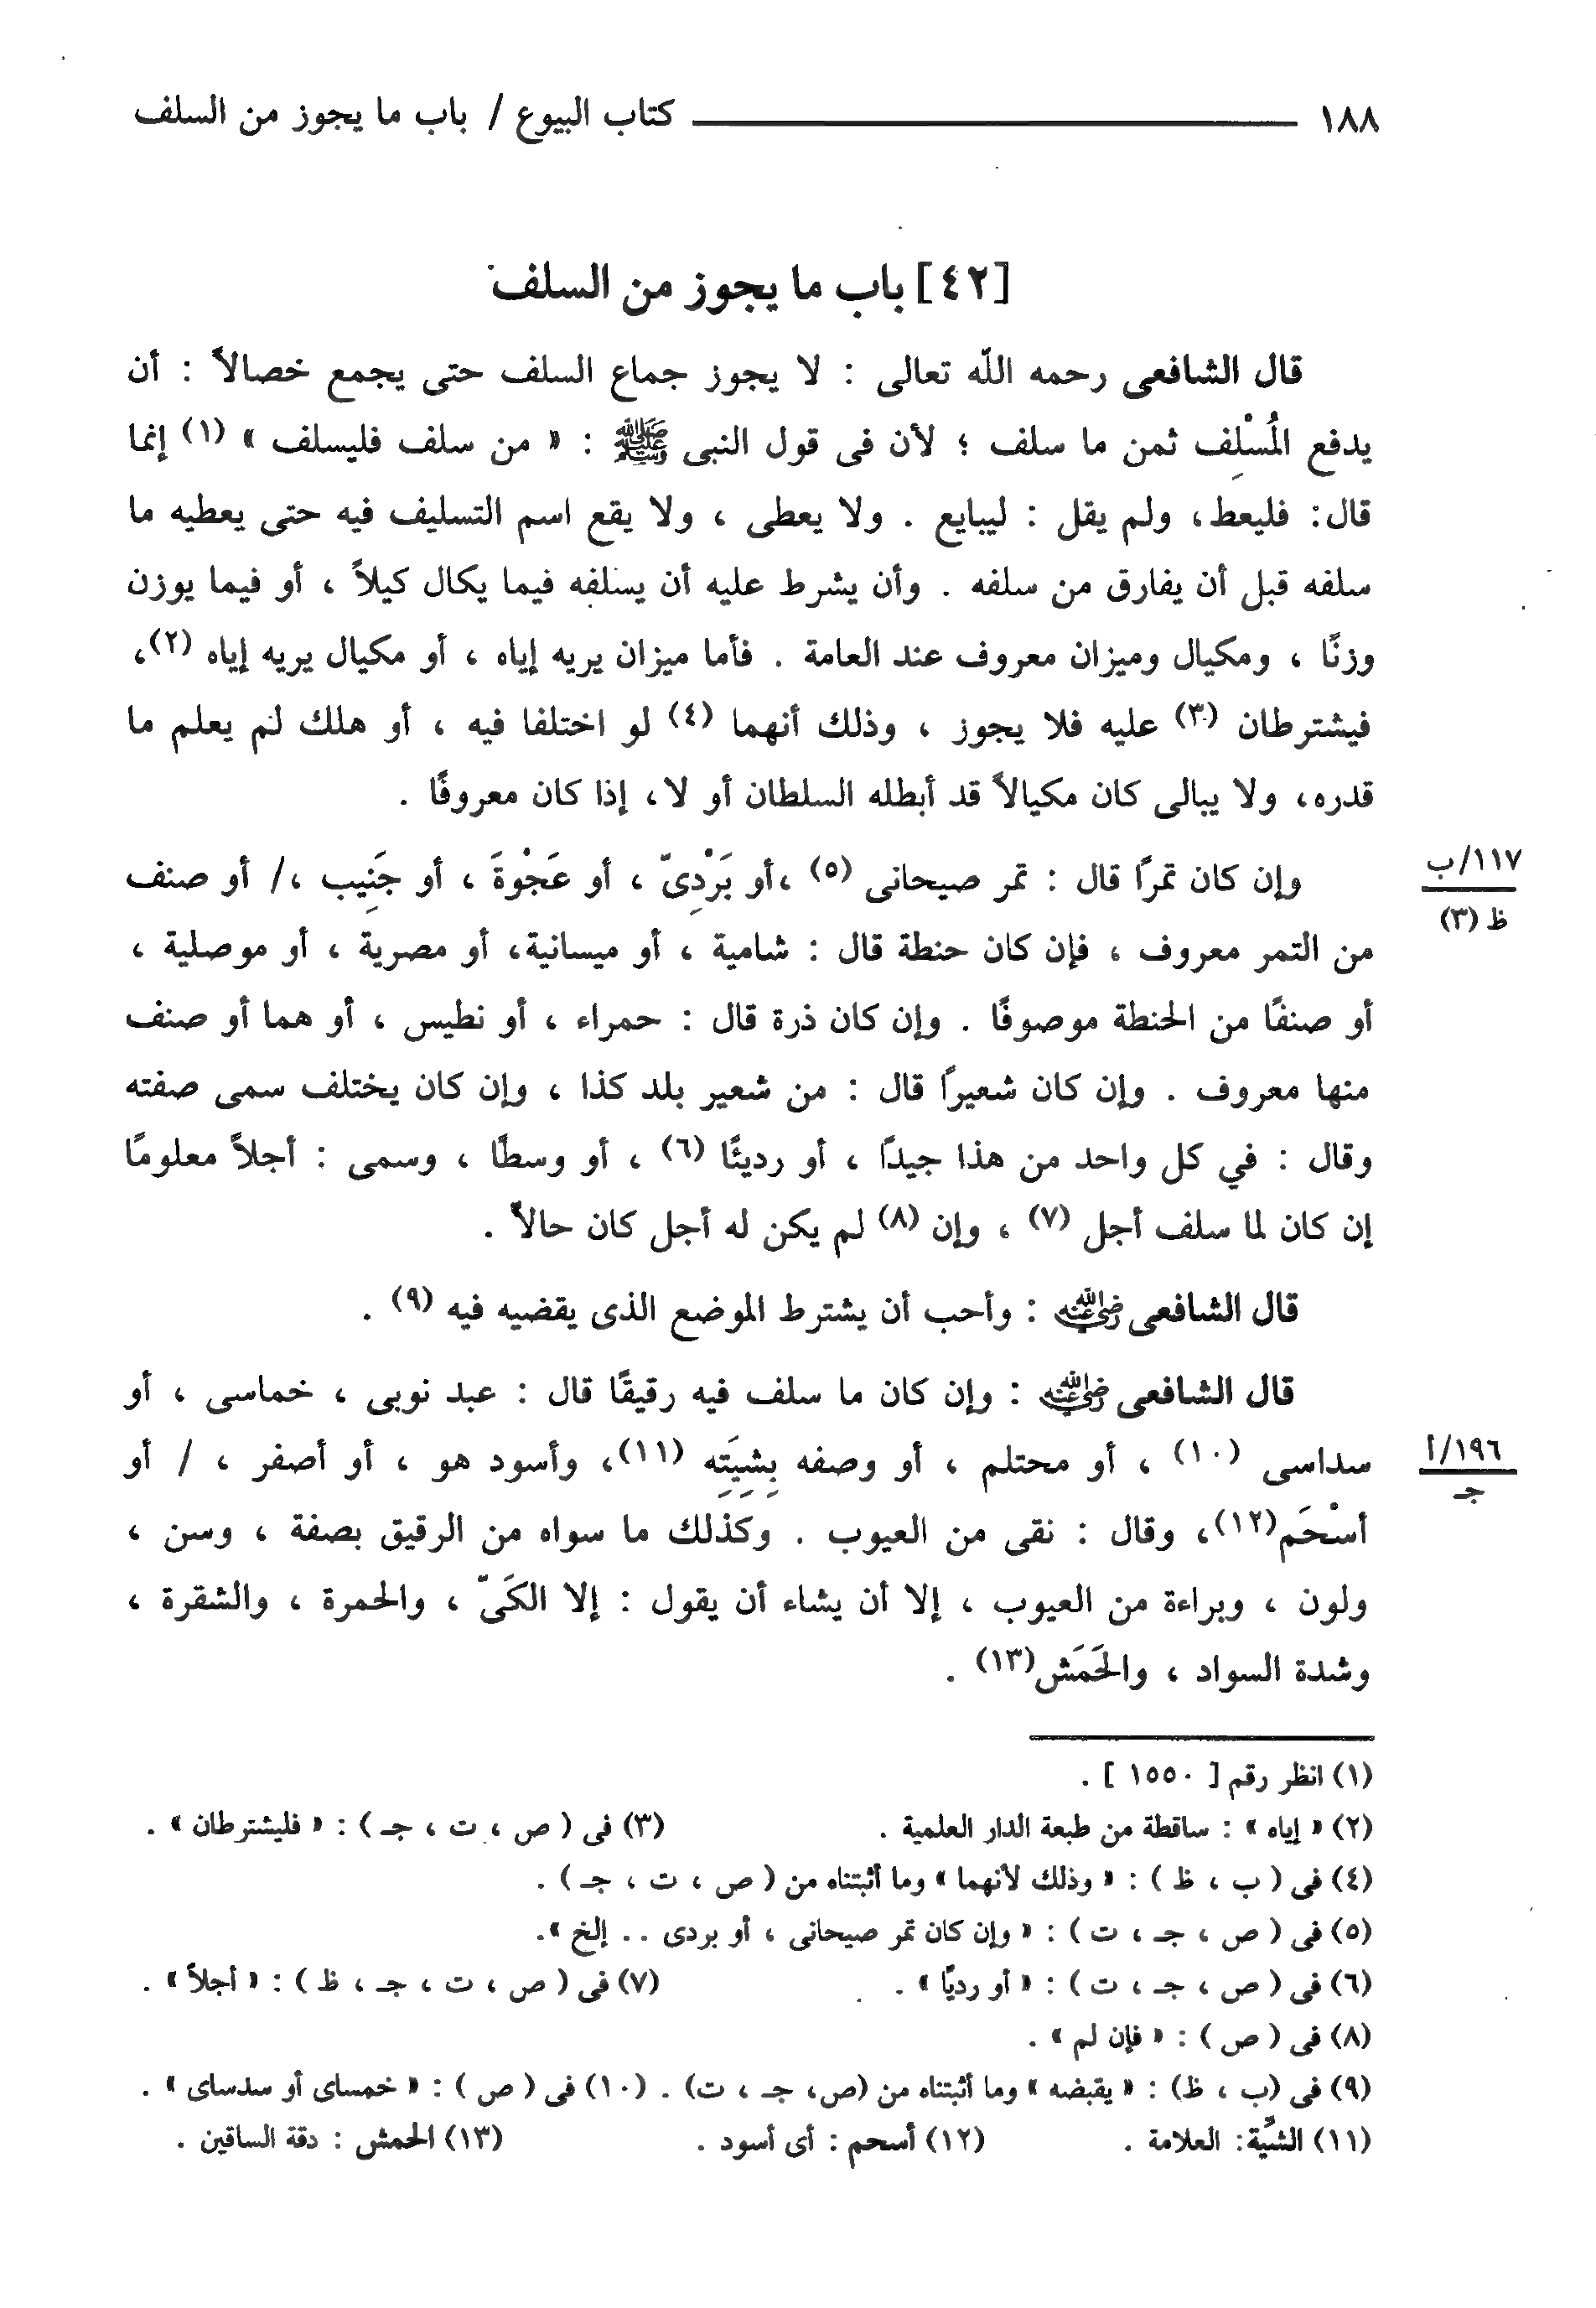 ١٨٨ كتاب البيوع / باب ما يجوز من السلف
[٤٢] باب ما يجوز من السلف
قال الشافعى رحمه اللّه تعالى : لا يجوز جماع السلف حتى يجمع خصالاً : أن
يدفع المُسْلِف ثمن ما سلف ؛ لأن فى قول النبى ﷺ : « من سلف فليسلف » (١) إنما
قال: فليعط، ولم يقل : ليبايع . ولا يعطى ، ولا يقع اسم التسليف فيه حتى يعطيه ما
سلفه قبل أن يفارق من سلفه . وأن يشرط عليه أن يسلفه فيما يكال كيلاً ، أو فيما يوزن
وزنًا ، ومكيال وميزان معروف عند العامة . فأما ميزان يريه إياه ، أو مكيال يريه إياه (٢)،
فيشترطان (٣) عليه فلا يجوز ، وذلك أنهما (٤) لو اختلفا فيه ، أو هلك لم يعلم ما
قدره، ولا يبالى كان مكيالاً قد أبطله السلطان أو لا، إذا كان معروفًا .
وإن كان تمرًا قال : تمر صيحانى (٥) ،أو بَرْدِىّ ، أو عَجْوةَ ، أو جَنِيب ،/ أو صنف
١١٧/ب
ظ (٣)
من التمر معروف ، فإن كان حنطة قال : شامية ، أو ميسانية، أو مصرية ، أو موصلية ،
أو صنفًا من الحنطة موصوفًا . وإن كان ذرة قال : حمراء ، أو نطيس ، أو هما أو صنف
منها معروف . وإن كان شعيرًا قال : من شعير بلد كذا ، وإن كان يختلف سمى صفته
وقال : في كل واحد من هذا جيدًا ، أو رديئًا (٦) ، أو وسطًا ، وسمى : أجلاً معلومًا
إن كان لما سلف أجل (٧) ، وإن (٨) لم يكن له أجل كان حالاً .
قال الشافعى رضي الله عنه : وأحب أن يشترط الموضع الذى يقضيه فيه (٩) .
قال الشافعى رضي الله عنه : وإن كان ما سلف فيه رقيقًا قال : عبد نوبى ، خماسى ، أو
سداسى (١٠) ، أو محتلم ، أو وصفه بِشِيَتِه (١١)، وأسود هو ، أو أصفر ، / أو
١٩٦/أ
جـ
أسْحَم(١٢)، وقال : نقى من العيوب . وكذلك ما سواه من الرقيق بصفة ، وسن ،
ولون ، وبراءة من العيوب ، إلا أن يشاء أن يقول : إلا الكَىّ ، والحمرة ، والشقرة ،
وشدة السواد ، والحَمَش(١٣) .
(١) انظر رقم [ ١٥٥٠ ] .
(٢) « إياه » : ساقطة من طبعة الدار العلمية . (٣) فى ( ص ، ت ، جـ ) : « فليشترطان » .
(٤) فى ( ب ، ظ ) : « وذلك لأنهما » وما أثبتناه من ( ص ، ت ، جـ ) .
(٥) فى ( ص ، جـ ، ت ) : « وإن كان تمر صيحانى ، أو بردى .. إلخ ».
(٦) فى ( ص ، جـ ، ت ) : « أو رديًا » . (٧) فى ( ص ، ت ، جـ ، ظ ) : « أجلاً » .
(٨) فى ( ص ) : « فإن لم » .
(٩) فى (ب ، ظ) : « يقبضه » وما أثبتناه من (ص، جـ ، ت) . (١٠) فى ( ص ) : « خمساى أو سدساى » .
(١١) الشِّية: العلامة . (١٢) أسحم : أى أسود . (١٣) الحمش : دقة الساقين .